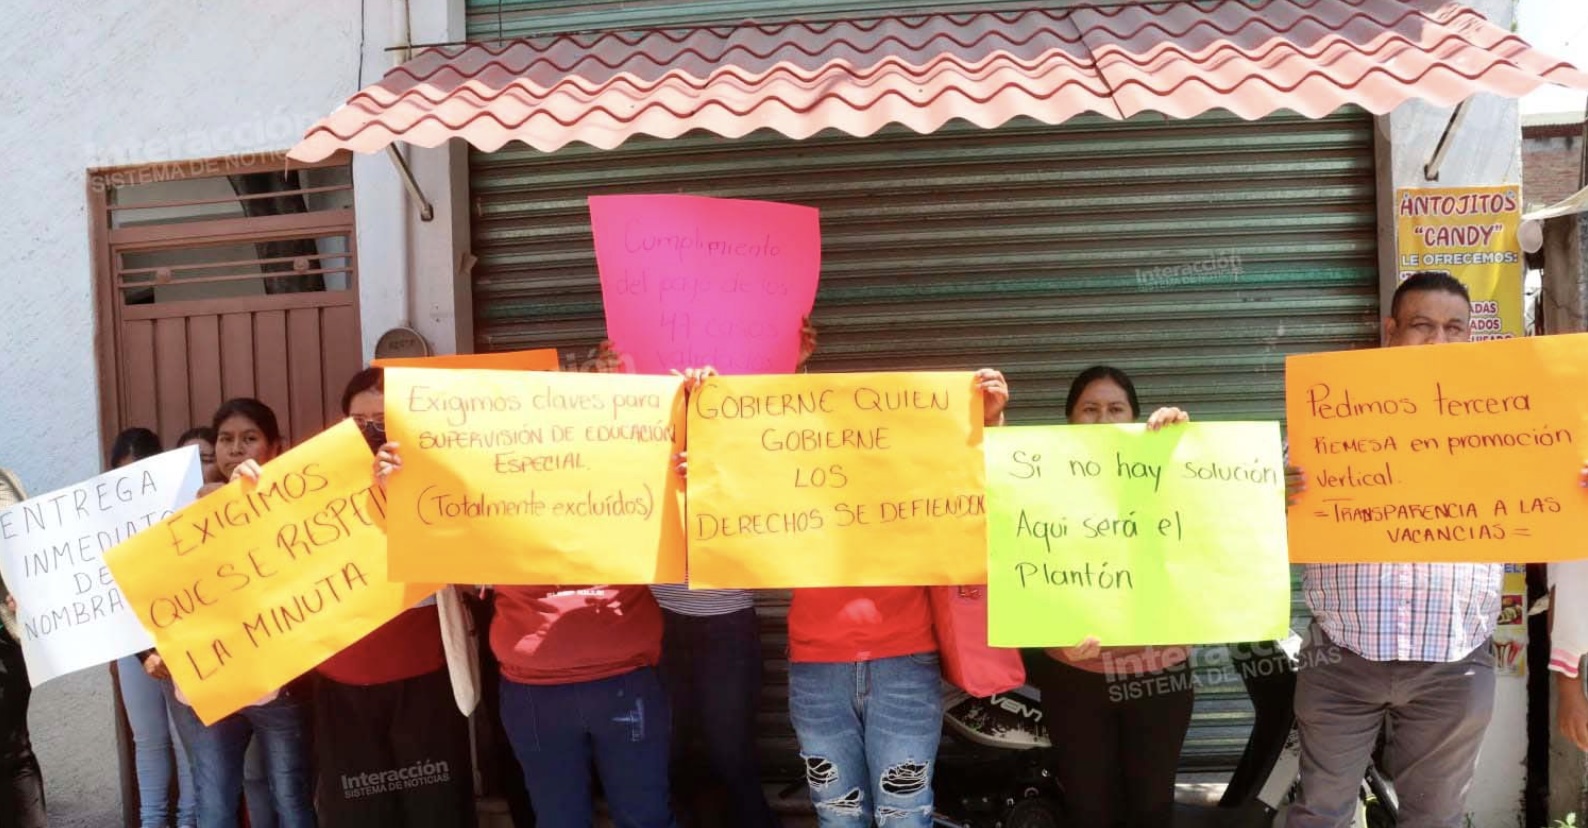 Interacción
SISTEMA DE NOTICIAS
ENTREGA
INMEDIATO
DE
NOMBRA
EXIGIMOS
QUE SE RISPET
LA MINUTA
Exigimos claves para
SUPERVISIÓN DE EDUCACIÓN
ESPECIAL.
(Totalmente excluídos)
Cumplimiento
del pago de los
47 años
GOBIERNE QUIEN
GOBIERNE
LOS
DERECHOS SE DEFIENDEN
Si no hay solución
Aqui será el
Plantón
Pedimos tercera
REMESA en promoción
vertical.
=TRANSPARENCIA A LAS
VACANCIAS=
ANTOJITOS
"CANDY"
LE OFRECEMOS:
ADAS
ADOS
VENT
Interacción
SISTEMA DE NOTICIAS
Interacción
SISTEMA DE NOTICIAS
Interacción
SISTEMA DE NOTICIAS